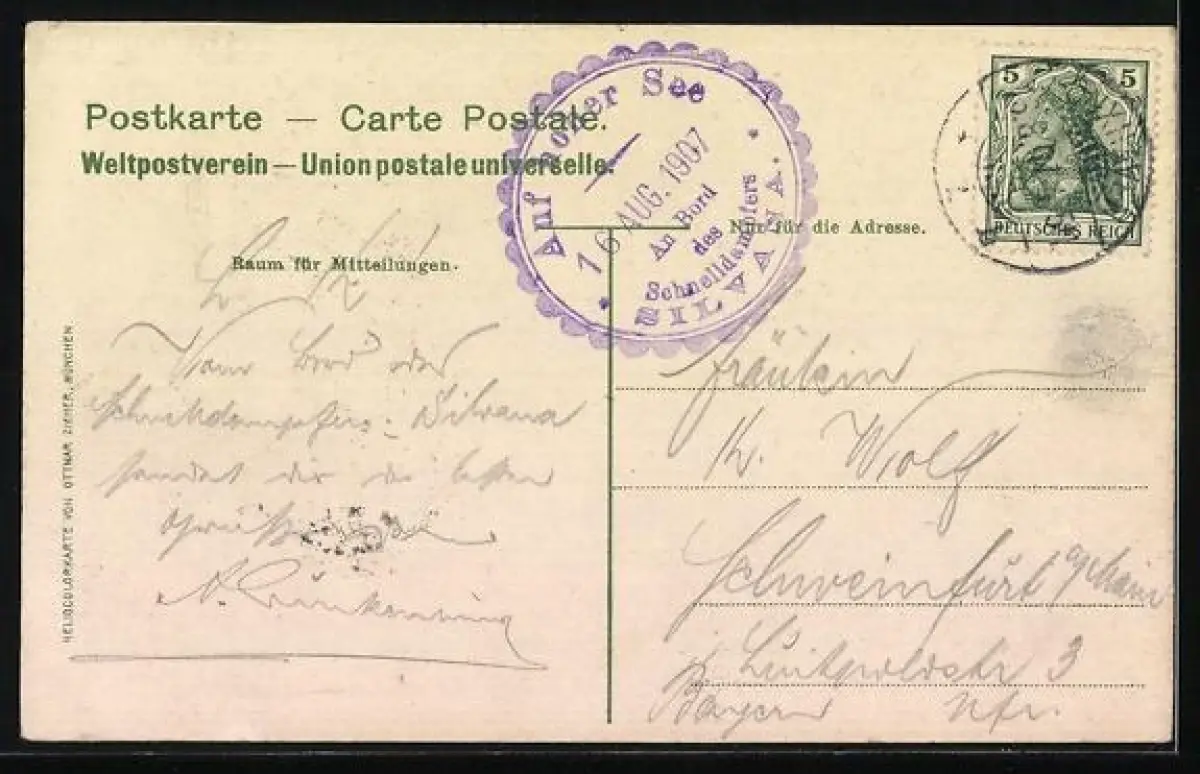 Postkarte — Carte Postale.
Weltpostverein — Union postale universelle.
Auf hoher See
16 AUG. 1907
An Bord
des
Schnelldampfers
SILVANA.
5 5
DEUTSCHES REICH
Raum für Mitteilungen.
Nur für die Adresse.
Vom Bord des
Schnelldampfers Silvana
sendet dir die besten
Grüße
HELIOCOLORKARTE VON OTTMAR ZIEHER, MÜNCHEN.
Fräulein
Wolf
Schweinfurt a/Main
Luitpoldstr 3
Bayern Ufr.